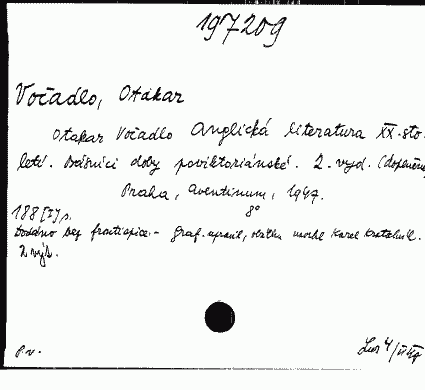 197209
Vočadlo, Otakar
Otakar Vočadlo Anglická literatura XX. sto-
letí. Básníci doby poviktoriánské. 2. vyd. (doplněné)
Praha, Aventinum, 1947.
8°
188 [I] s.
Dodáno bez frontispice. - graf. upravil, obálku navrhl Karel
2 výt.
p.v.